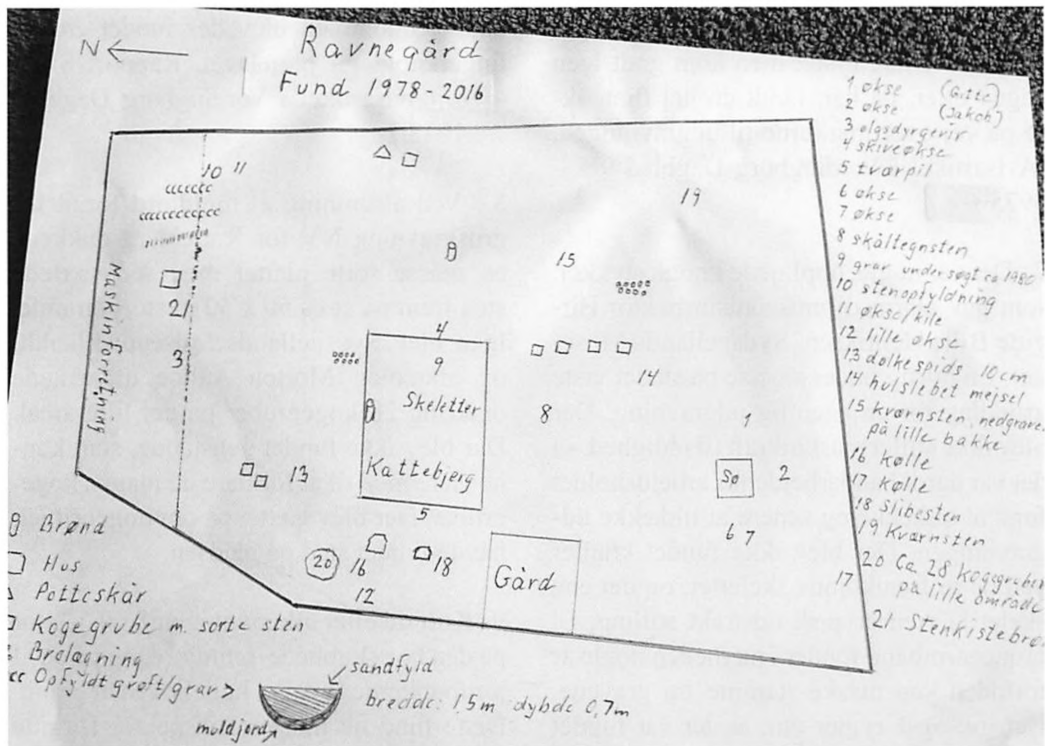 N
Ravnegård
Fund 1978-2016
1 økse (Gitte)
2 økse (Jakob)
3 elgsdyrgevir
4 skiveøkse
5 tværpil
6 økse
7 økse
8 skåltegnsten
9 grav undersøgt i 1980
10 stenopfyldning
11 økse/kile
12 lille økse
13 dolkespids 10cm
14 hulslebet mejsel
15 kværnsten, nedgravet
på lille bakke
16 kølle
17 kølle
18 slibesten
19 kværnsten
20 Ca. 28 kogegruber
på et lille område
21 Stenkistebrø
10 11
19
15
Markforretning
21
3
4
9
Skeletter
14
8
1
13
Kattebjerg
Sø
2
5
6 7
20
16
18
Gård
12
17
Brøn
Hus
Potteskår
Kogegrube m. sorte sten
Brolægning
Opfyldt grøft/grav
sandfyld
bredde: 1,5m dybde 0,7m
muldjord